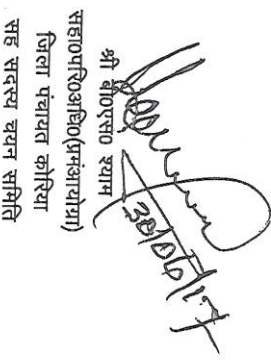 30/06/17
श्री बी०एस० श्याम
सहा०परि०अधि०(प्रमंआयोग्रा)
जिला पंचायत कोरिया
सह सदस्य चयन समिति